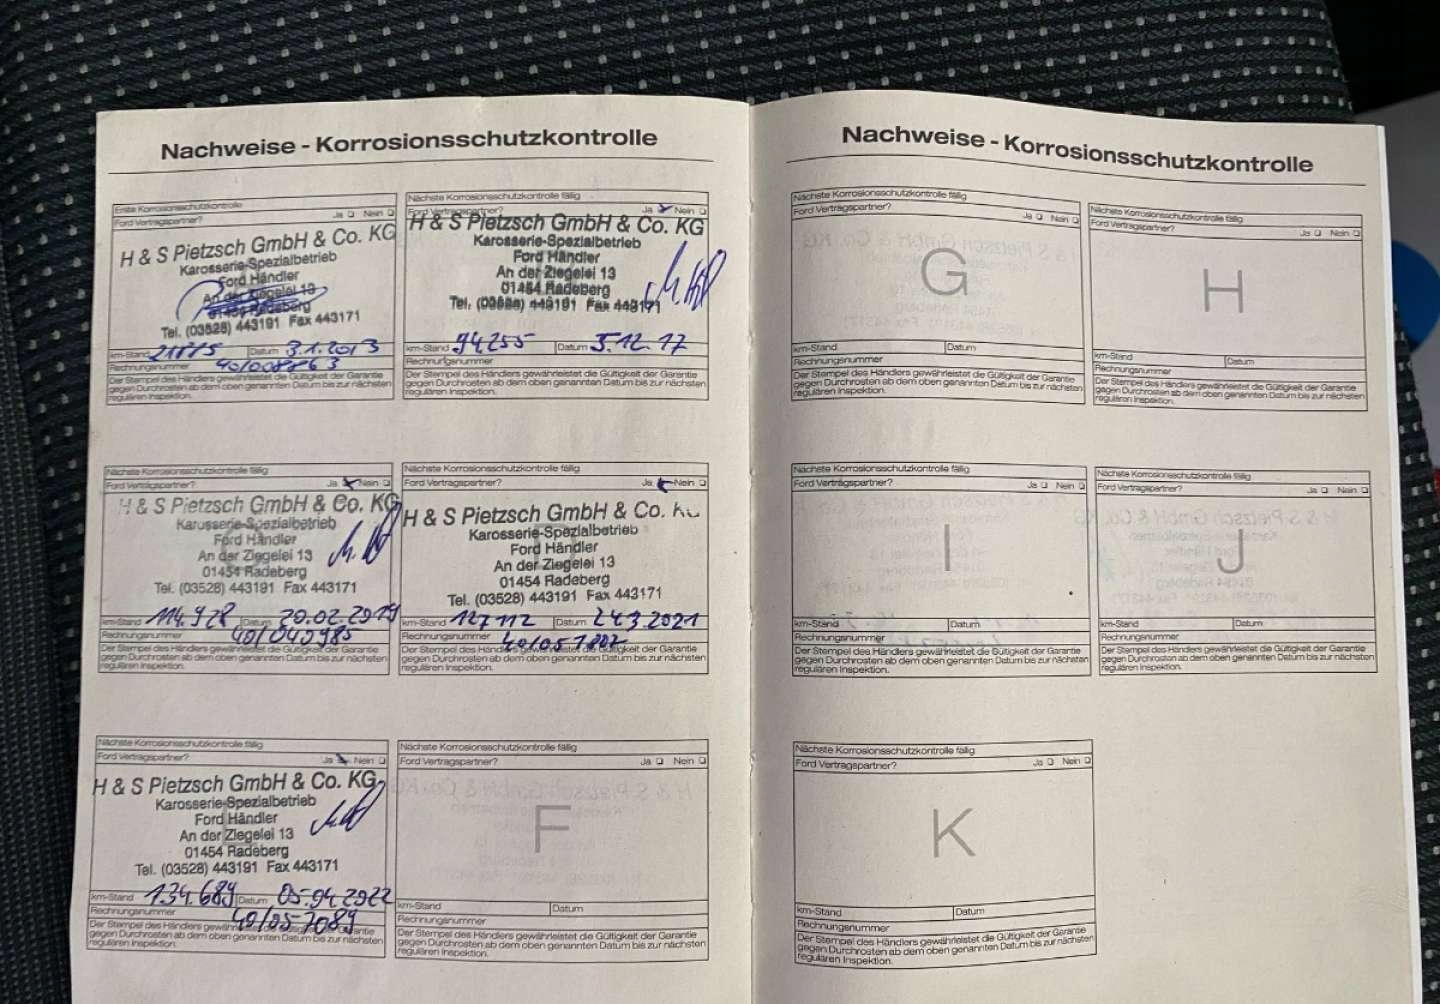 Nachweise - Korrosionsschutzkontrolle
Erste Korrosionsschutzkontrolle
Ford Vertragspartner? Ja Nein
H & S Pietzsch GmbH & Co. KG
Karosserie-Spezialbetrieb
Ford Händler
An der Ziegelei 13
01454 Radeberg
Tel. (03528) 443191 Fax 443171
km-Stand 21775 Datum 3.1.2013
Rechnungsnummer 40/008763
Der Stempel des Händlers gewährleistet die Gültigkeit der Garantie
gegen Durchrosten ab dem oben genannten Datum bis zur nächsten
regulären Inspektion.
Nächste Korrosionsschutzkontrolle fällig
Ford Vertragspartner? Ja Nein
H & S Pietzsch GmbH & Co. KG
Karosserie-Spezialbetrieb
Ford Händler
An der Ziegelei 13
01454 Radeberg
Tel. (03528) 443191 Fax 443171
km-Stand 94255 Datum 5.12.17
Rechnungsnummer
Der Stempel des Händlers gewährleistet die Gültigkeit der Garantie
gegen Durchrosten ab dem oben genannten Datum bis zur nächsten
regulären Inspektion.
Nächste Korrosionsschutzkontrolle fällig
Ford Vertragspartner? Ja Nein
H & S Pietzsch GmbH & Co. KG
Karosserie-Spezialbetrieb
Ford Händler
An der Ziegelei 13
01454 Radeberg
Tel. (03528) 443191 Fax 443171
km-Stand 114.928 Datum 20.02.2019
Rechnungsnummer 40/040985
Der Stempel des Händlers gewährleistet die Gültigkeit der Garantie
gegen Durchrosten ab dem oben genannten Datum bis zur nächsten
regulären Inspektion.
Nächste Korrosionsschutzkontrolle fällig
Ford Vertragspartner? Ja Nein
H & S Pietzsch GmbH & Co. KG
Karosserie-Spezialbetrieb
Ford Händler
An der Ziegelei 13
01454 Radeberg
Tel. (03528) 443191 Fax 443171
km-Stand 127112 Datum 24.3.2021
Rechnungsnummer
Der Stempel des Händlers gewährleistet die Gültigkeit der Garantie
gegen Durchrosten ab dem oben genannten Datum bis zur nächsten
regulären Inspektion.
Nächste Korrosionsschutzkontrolle fällig
Ford Vertragspartner? Ja Nein
H & S Pietzsch GmbH & Co. KG
Karosserie-Spezialbetrieb
Ford Händler
An der Ziegelei 13
01454 Radeberg
Tel. (03528) 443191 Fax 443171
km-Stand 134.689 Datum 05.04.2022
Rechnungsnummer 40/057089
Der Stempel des Händlers gewährleistet die Gültigkeit der Garantie
gegen Durchrosten ab dem oben genannten Datum bis zur nächsten
regulären Inspektion.
Nächste Korrosionsschutzkontrolle fällig
Ford Vertragspartner? Ja Nein
F
km-Stand Datum
Rechnungsnummer
Der Stempel des Händlers gewährleistet die Gültigkeit der Garantie
gegen Durchrosten ab dem oben genannten Datum bis zur nächsten
regulären Inspektion.
Nachweise - Korrosionsschutzkontrolle
Nächste Korrosionsschutzkontrolle fällig
Ford Vertragspartner? Ja Nein
G
km-Stand Datum
Rechnungsnummer
Der Stempel des Händlers gewährleistet die Gültigkeit der Garantie
gegen Durchrosten ab dem oben genannten Datum bis zur nächsten
regulären Inspektion.
Nächste Korrosionsschutzkontrolle fällig
Ford Vertragspartner? Ja Nein
H
km-Stand Datum
Rechnungsnummer
Der Stempel des Händlers gewährleistet die Gültigkeit der Garantie
gegen Durchrosten ab dem oben genannten Datum bis zur nächsten
regulären Inspektion.
Nächste Korrosionsschutzkontrolle fällig
Ford Vertragspartner? Ja Nein
I
km-Stand Datum
Rechnungsnummer
Der Stempel des Händlers gewährleistet die Gültigkeit der Garantie
gegen Durchrosten ab dem oben genannten Datum bis zur nächsten
regulären Inspektion.
Nächste Korrosionsschutzkontrolle fällig
Ford Vertragspartner? Ja Nein
J
km-Stand Datum
Rechnungsnummer
Der Stempel des Händlers gewährleistet die Gültigkeit der Garantie
gegen Durchrosten ab dem oben genannten Datum bis zur nächsten
regulären Inspektion.
Nächste Korrosionsschutzkontrolle fällig
Ford Vertragspartner? Ja Nein
K
km-Stand Datum
Rechnungsnummer
Der Stempel des Händlers gewährleistet die Gültigkeit der Garantie
gegen Durchrosten ab dem oben genannten Datum bis zur nächsten
regulären Inspektion.